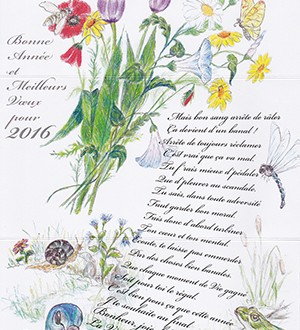 Bonne
Année
et
Meilleurs
Vœux
pour
2016
Mais bon sang arrête de râler
Ça devient d'un banal !
Arrête de toujours réclamer
C'est vrai que ça va mal.
Tu f'rais mieux d'pédaler
Que d'pleurer au scandale.
Tu sais, dans toute adversité
Faut garder bon moral.
Fais donc d'abord turbiner
Ton cœur et ton mental.
Ecoute, te laisse pas emmerder
Par des choses bien banales.
Que chaque moment de Vie gagné
Soit pour toi le régal.
C'est bien pour ça que cette année
J'te souhaite au final
Bonheur, joie
La Vie